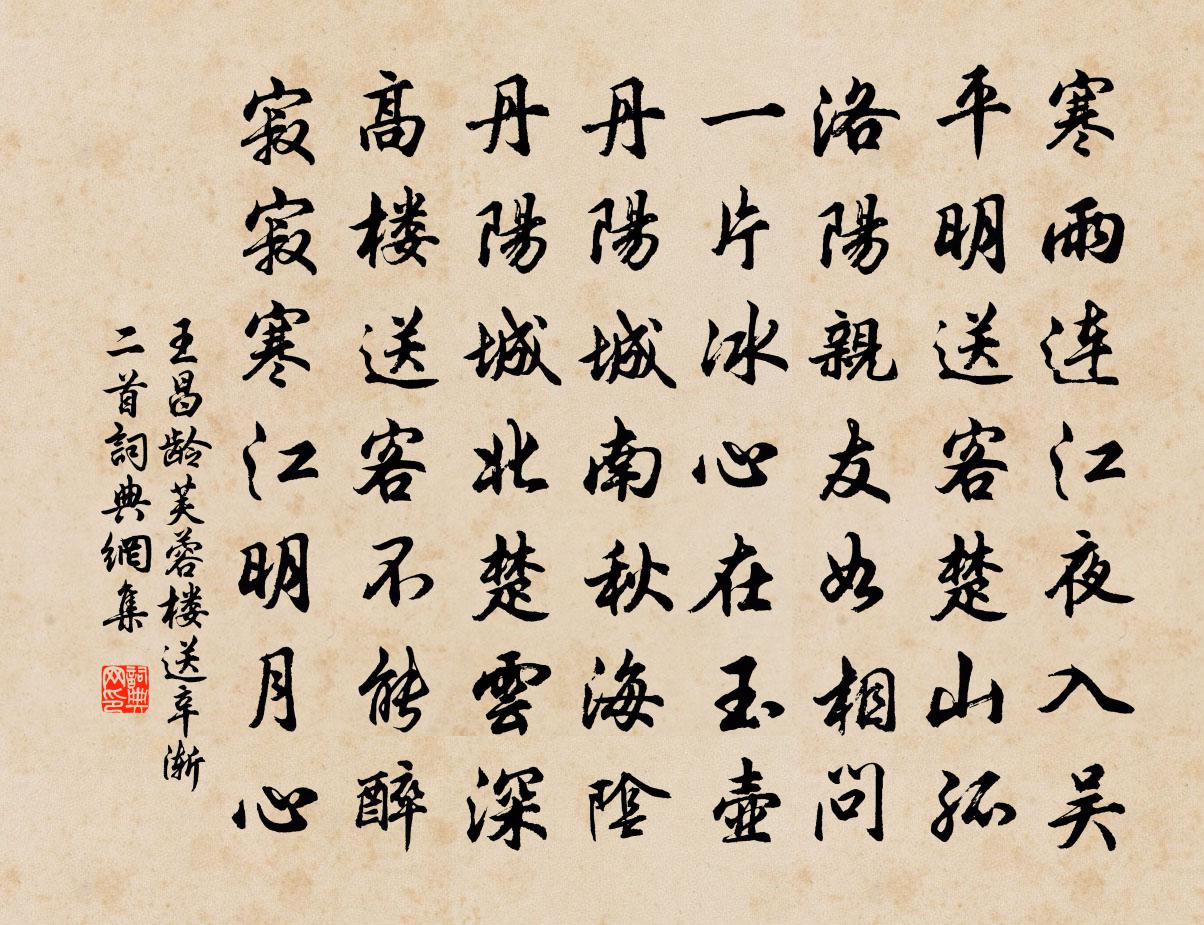 寒雨連江夜入吴
平明送客楚山孤
洛陽親友如相問
一片冰心在玉壺
丹陽城南秋海陰
丹陽城北楚雲深
高楼送客不能醉
寂寂寒江明月心
王昌龄芙蓉楼送辛渐
二首詞典網集
詞典网印